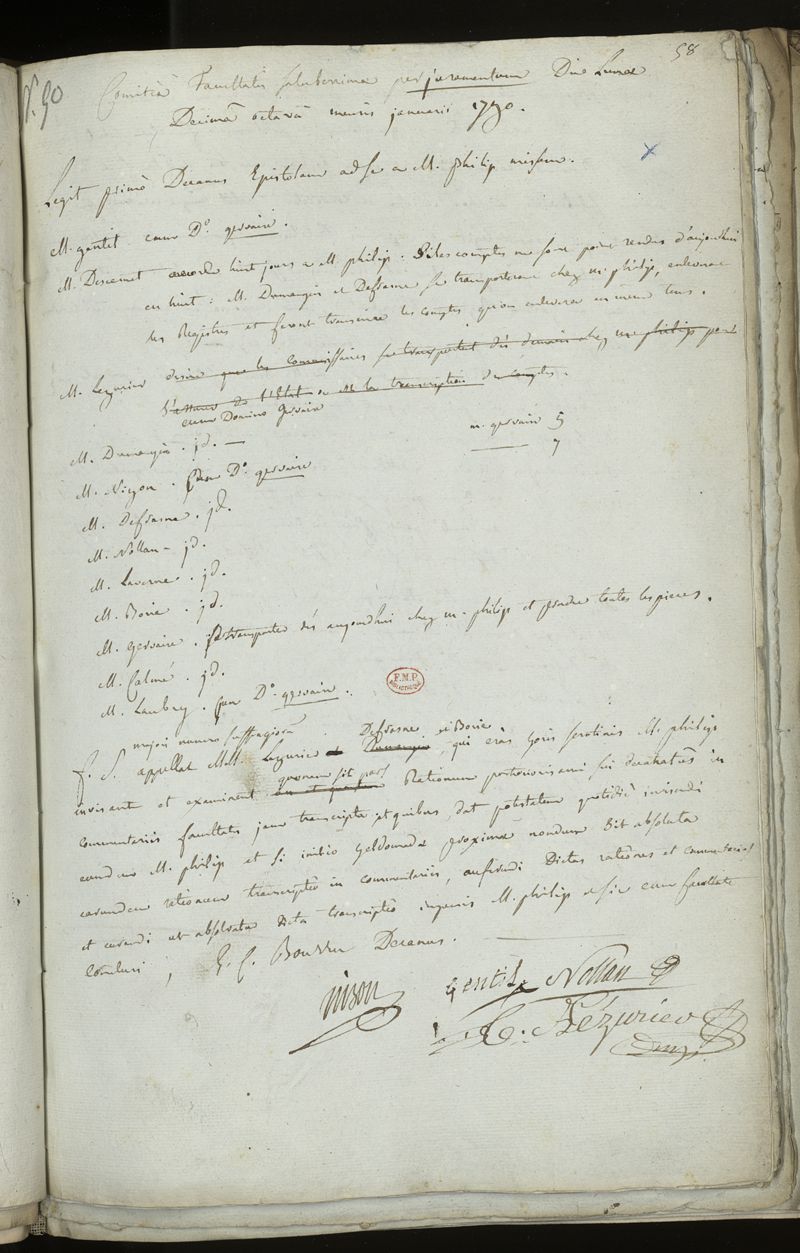 58
N. 90
Comitia Facultatis saluberrimae per juramentum Die Lunae
Decimâ octavâ mensis januarii 1790.
Legit primò Decanus Epistolam ad se a M. philip missam.
M. gentil cum D.o gervaise.
M. Descemet accorde huit jours a M. philip. Si les comptes ne sont point rendus d'aujourdhui
en huit : M. Dumangin et Defrasne se transporteront chez m. philip, enleveront
les Registres et feront transcrire les comptes qu'on enlevera en même tems.
M. Lezurier desire que les Commissaires se transportent dès demain chez m. philip pour
s'assurer de l'Etat de la transcription des comptes.
cum Domino Gervaise
M. Dumangin. jd. —
m. gervaise 5
7
M. Nizon. cum D.o gervaise
M. Defrasne. jd.
M. Nollan — jd.
M. Laverne. jd.
M. Borie. jd.
M. Gervaise. se transporter dès aujourdhui chez m. philip et prendre toutes les pieces.
M. Calmé. jd.
M. Laubry. cum D.o gervaise.
F.M.P.
BIBLIOTHEQUE
majori numero suffragiorum
Defrasne et Borie
F. S. appellat M.M. Lezurier et Dumangin, qui cras horis serotinis M. philip
quorum sit pars
invisant et examinent an et quaenam Rationum posterioris anni sui decanatûs in
commentariis facultatis jam transcripta et quibus dat potestatem quotidiè invisendi
eundem M. philip et si initio hebdomadae proximae nondum sit absoluta
earundem rationum transcriptio in commentariis, auferendi dictas rationes et commentarios
et curandi ut absolvatur dicta transcriptio impensis M. philip et sic cum facultate
Conclusi, E. C. Bourru Decanus.
nison Gentil Nollan
C. Lézurier